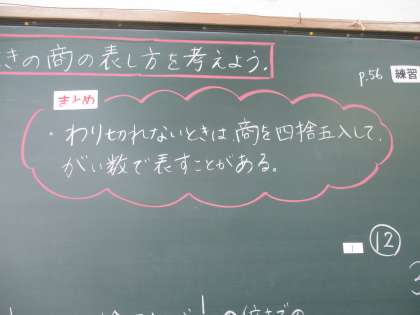 きの商の表し方を考えよう.
p.56 練習
まとめ
・わり切れないときは,商を四捨五入して,
がい数で表すことがある。
1 ⑫
の位までの